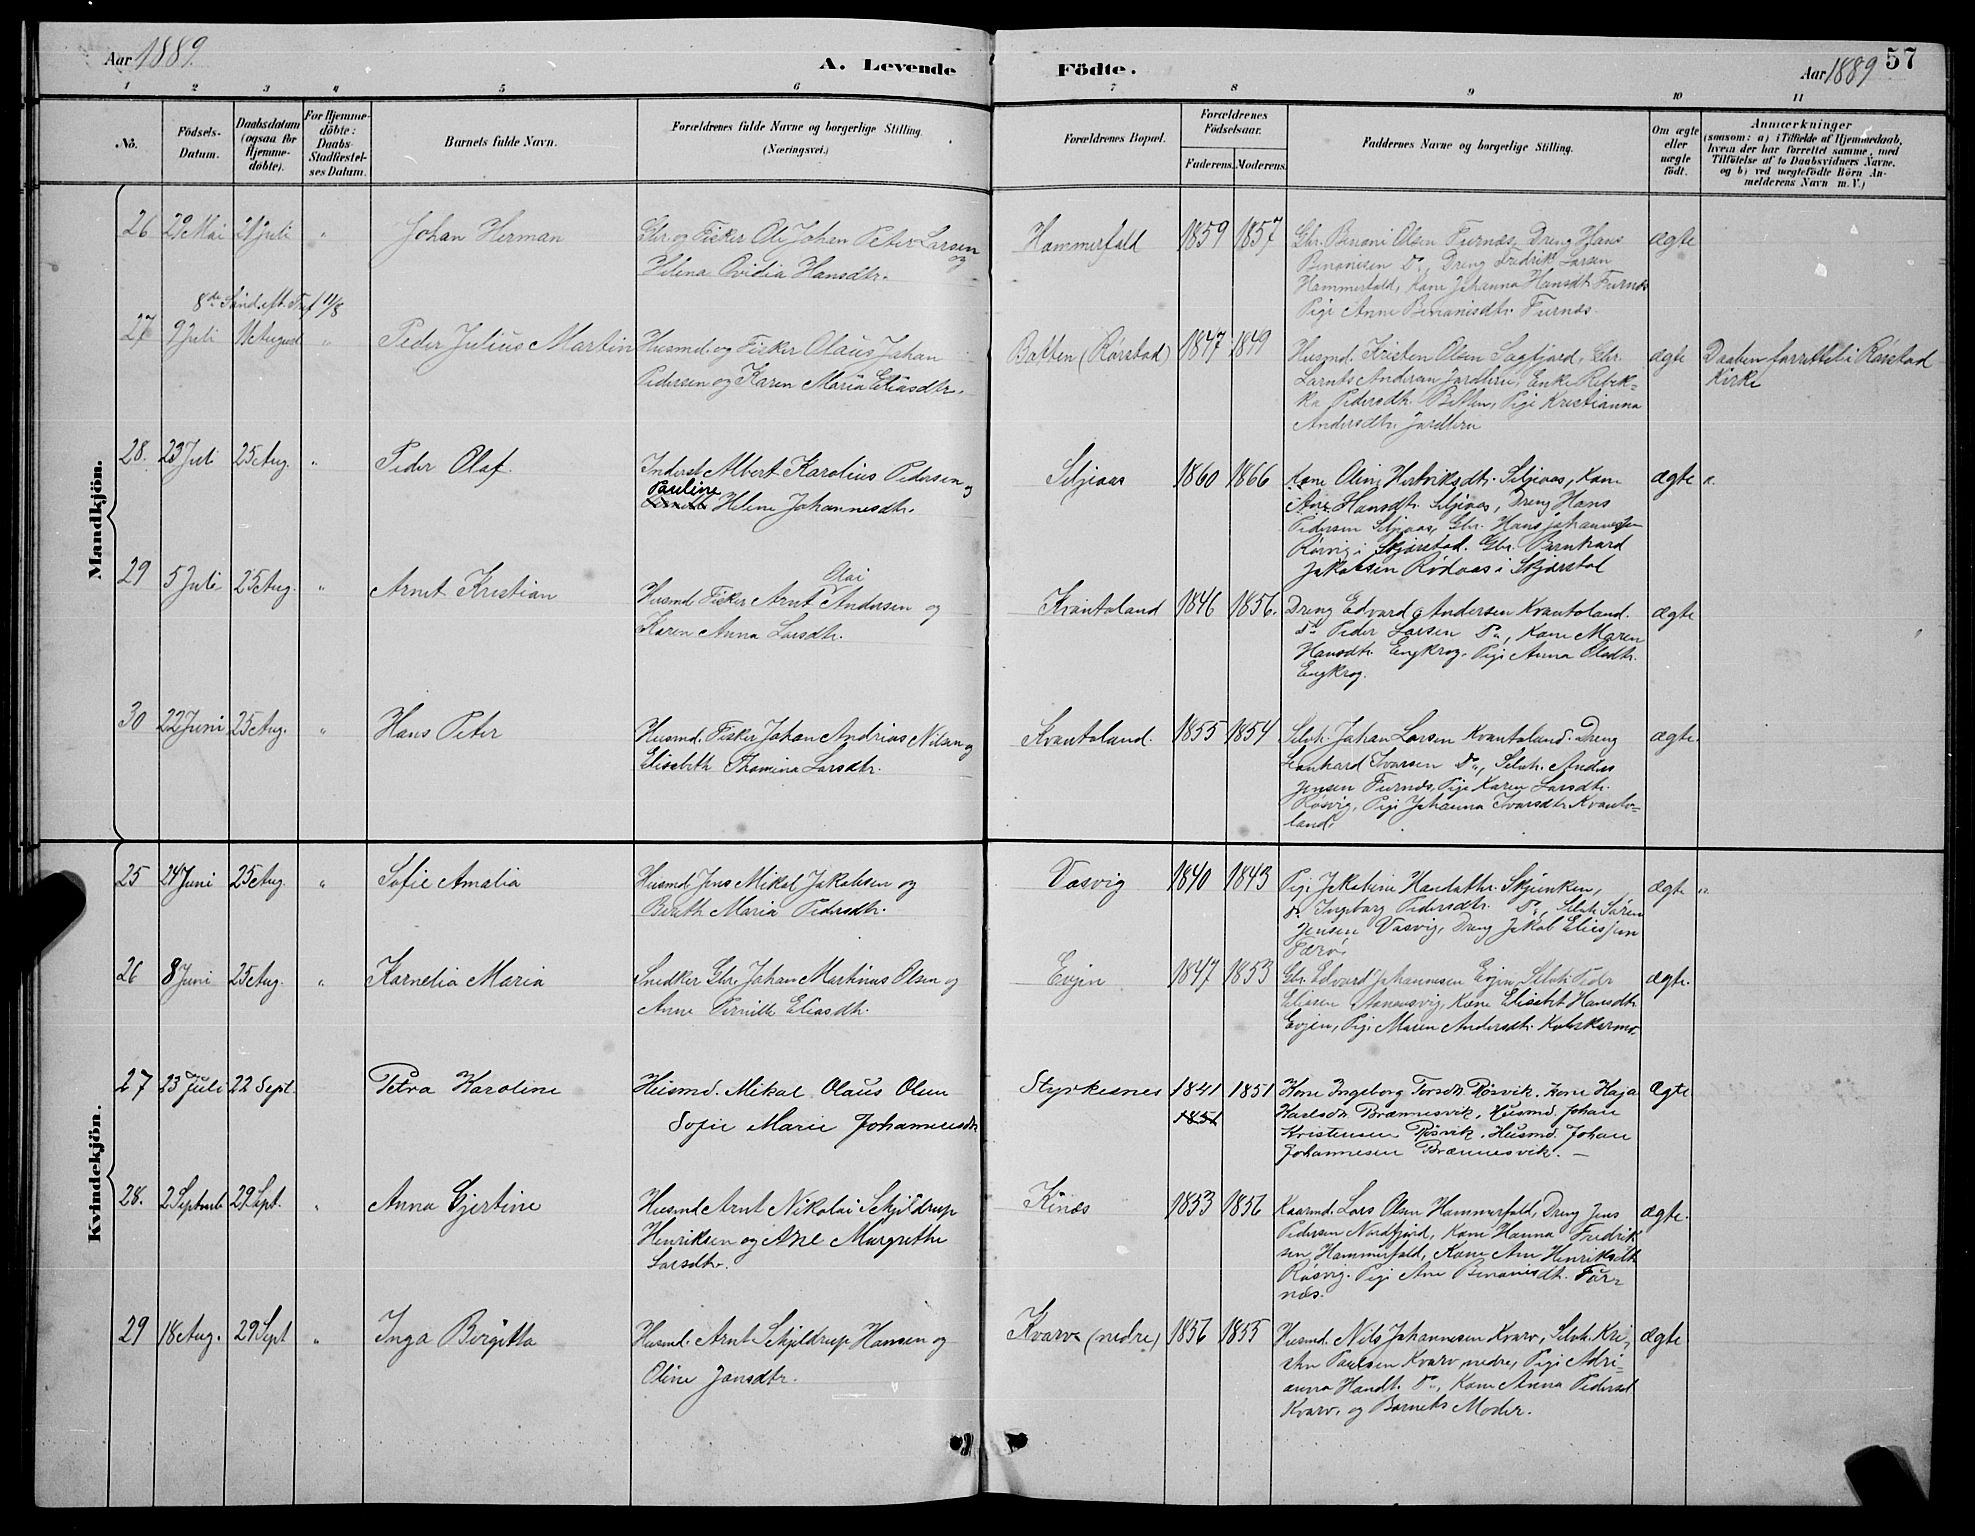 Aar 1889.
A. Levende
Födte.
Aar 1889
57
1 2 3 4 5 6 7 8 9 10 11
No.
Födsels-
Datum.
Daabsdatum
(ogsaa for
Hjemme-
döbte).
For Hjemme-
döbte:
Daabs-
Stadfæstel-
ses Datum.
Barnets fulde Navn.
Forældrenes fulde Navne og borgerlige Stilling.
(Næringsvei.)
Forældrenes Bopæl.
Forældrenes
Födselsaar.
Faderens. Moderens.
Faddernes Navne og borgerlige Stilling.
Om ægte
eller
uægte
födt.
Anmærkninger
(saasom: a) i Tilfælde af Hjemmedaab,
hvem der har forrettet samme, med
Tilföielse af to Daabsvidners Navne.
og b) ved uægtefödte Börn An-
melderens Navn m. V.)
Mandkjön.
26 29 Mai 21 Juli " Johan Herman
Gbr. og Fisker Ole Johan Peter Larsen
og
Helena Ovidia Hansdtr.
Hammerfald 1859 1857
Gbr. Benoni Olsen Furnæs, Dreng Hans
Benonisen Do., Dreng Fredrik Larsen
Hammerfald, Kone Johanna Hansdt. Furnæs
Pige Anne Benonisdtr. Furnæs.
ægte
8de Sønd. eft. Tref. 11/8
27 9 Juli 11 August " Peder Julius Martin
Husmd. og Fisker Olaus Johan
Pedersen og Karen Maria Eliasdtr.
Batten (Rørstad) 1847 1849
Husmd. Kristen Olsen Sagfjord, Gbr.
Andersen Enke Rebek-
ka Pedersdt. Pige Kristianna
Andersdtr.
ægte
Daaben forrettet i Rørstad
Kirke
28. 23 Juli 25 Aug. " Peder Olaf.
Inderst Albert Karolius Pedersen og
Pauline
Helene Johannesdtr.
Seljeaas 1860 1866
Kone Oline Henriksdtr. Seljeaas, Kone
Ane Hansdt. Seljeaas, Dreng Hans
Pedersen Seljeaas, Gbr. Hans Johannessen
Røvig i Skjerstad. Gbr. Bernhard
Jakobsen Rødaas i Skjerstad
ægte "
29 5 Juli 25 Aug. " Arnt Kristian
Olai
Husmd. Fisker Arnt Andersen og
Karen Anna Larsdtr.
Kvantoland 1846 1856.
Dreng Edvard Andersen Kvantoland.
do. Peder Larsen Do., Kone Maren
Hansdtr. Engkrog. Pige Anna Olsdtr.
Engkrog.
ægte
30 22 Juni 25 Aug. " Hans Peter
Husmd. Fisker Johan Andrias Nilsen og
Elisabeth Thomina Larsdtr.
Kvantoland. 1855 1854
Selvh. Johan Larsen Kvantoland. Dreng
Leonhard Ivarsen Do., Selvh. Anders
Jensen Furnæs, Pige Karen Larsdtr.
Røsvig, Pige Johanna Ivarsdtr. Kvanto-
land.
ægte.
Kvindekjön.
25 24 Juni 25 Aug. " Sofie Amalia
Husmd. Jens Mikal Jakobsen og
Berith Maria Pedersdtr.
Vasvig 1840 1843
Pige Jakobine Skjunken,
do. Ingeborg Pedersdtr. Do., Selvh. Søren
Jensen Vasvig, Dreng Jakob Eliessen
Færø.
ægte "
26 8 Juni 25 Aug. " Karnelia Maria
Snedker Gbr. Johan Martinus Olsen og
Anne Pernille Eliasdtr.
Evjen 1847 1853
Gbr. Edvard Johannesen Evjen, Selvh. Peder
Eliasen Kone Elisabet Hansdtr.
Evjen, Pige Maren Andersdtr. Kobskarmo.
ægte.
27 23 Juli 22 Sept. Petra Karoline
Husmd. Mikal Olaus Olsen
Sofie Marie Johannesdtr
Styrkesnes 1841 1851
1851
Kone Ingeborg Torsdtr. Røsvik. Kone Kaja
Karlsdtr. Brænnesvik, Husmd. Johan
Kristensen Røsvik, Husmd. Johan
Johannesen Brænnesvik. —
ægte.
28. 2 Septemb 29 Sept. " Anna Gjertine
Husmd. Arnt Nikolai Schjeldrup
Henriksen og Ane Margrethe
Larsdtr.
Kinæs 1853 1856
Kaarmd. Lars Olsen Hammerfald, Dreng Jens
Pedersen Nordfjord, Kone Hanna Fredrik-
sen Hammerfald, Kone Ane Henriksdtr.
Røsvig. Pige Ane Benonisdt. Før-
næs.
ægte.
29 18 Aug. 29 Sept " Inga Birgitta
Husmd. Arnt Schjeldrup Hansen og
Oline Jonsdtr.
Kvarv (nedre) 1856 1855
Husmd. Nils Johannesen Kvarv, Selvh. Kri-
sten Paulsen Kvarv nedre, Pige Adri-
anna Hansdt. Do., Kone Anna Pedersd
Kvarv, og Barnets Moder.
ægte